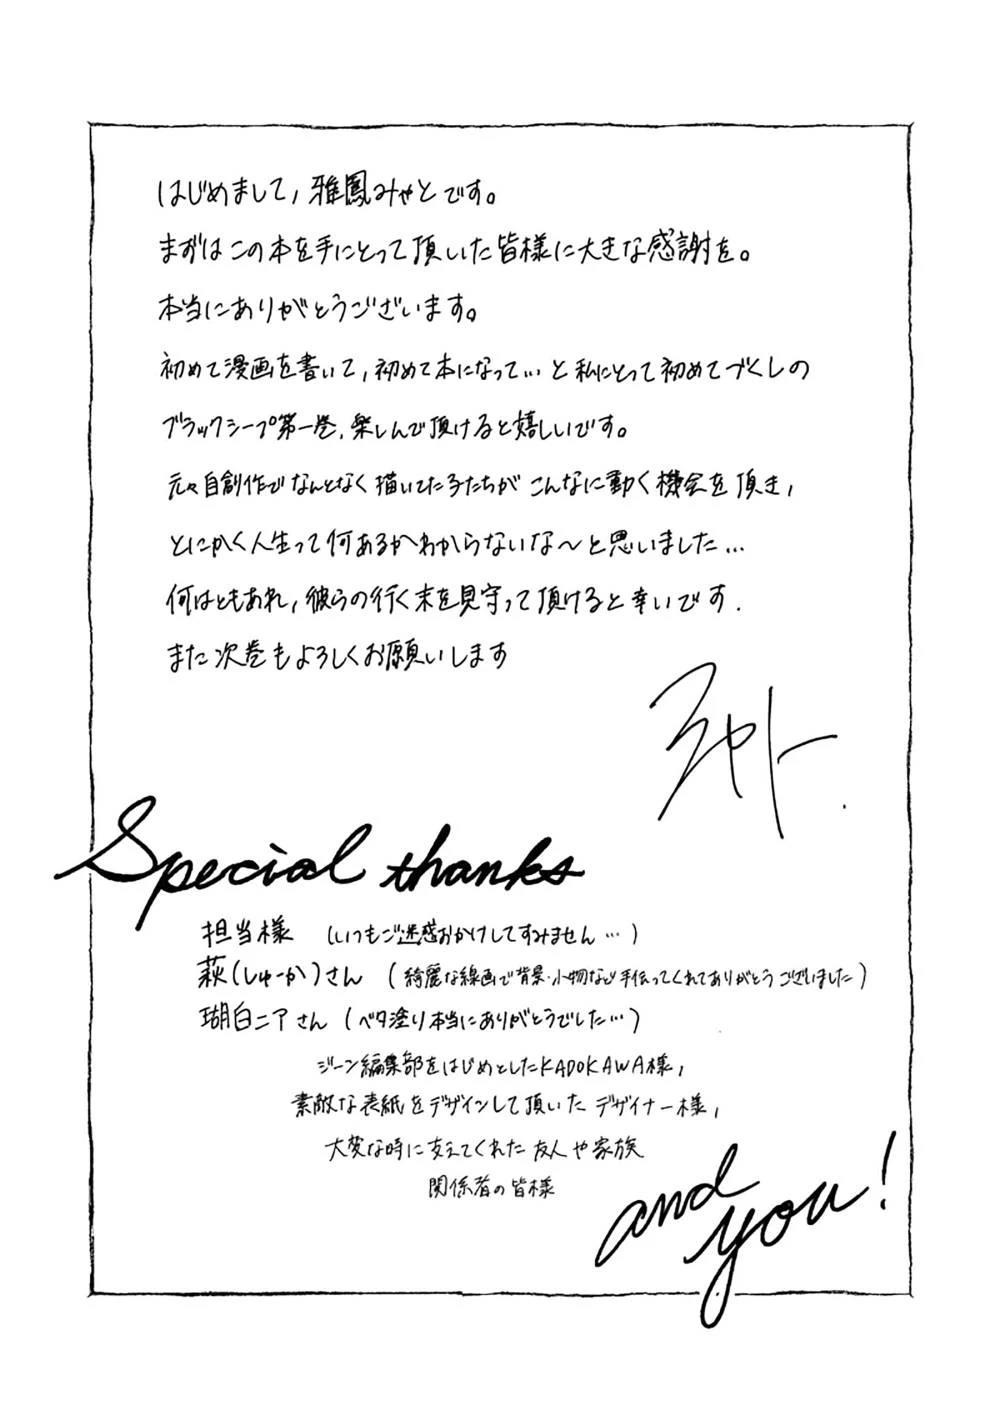 はじめまして、雅鳳みやとです。
まずはこの本を手にとって頂いた皆様に大きな感謝を。
本当にありがとうございます。
初めて漫画を書いて、初めて本になって…と私にとって初めてづくしの
ブラックシープ第一巻、楽しんで頂けると嬉しいです。
元々自創作でなんとなく描いてた子たちがこんなに動く機会を頂き、
とにかく人生って何あるかわからないな〜と思いました…
何はともあれ、彼らの行く末を見守って頂けると幸いです.
また次巻もよろしくお願いします
みやと.
Special thanks
担当様 (いつもご迷惑おかけしてすみません…)
萩(しゅーか)さん (綺麗な線画で背景・小物など手伝ってくれてありがとうございました)
瑚白ニアさん (ベタ塗り本当にありがとうでした…)
ジーン編集部をはじめとしたKADOKAWA様、
素敵な表紙をデザインして頂いたデザイナー様、
大変な時に支えてくれた友人や家族
関係者の皆様
and
you!